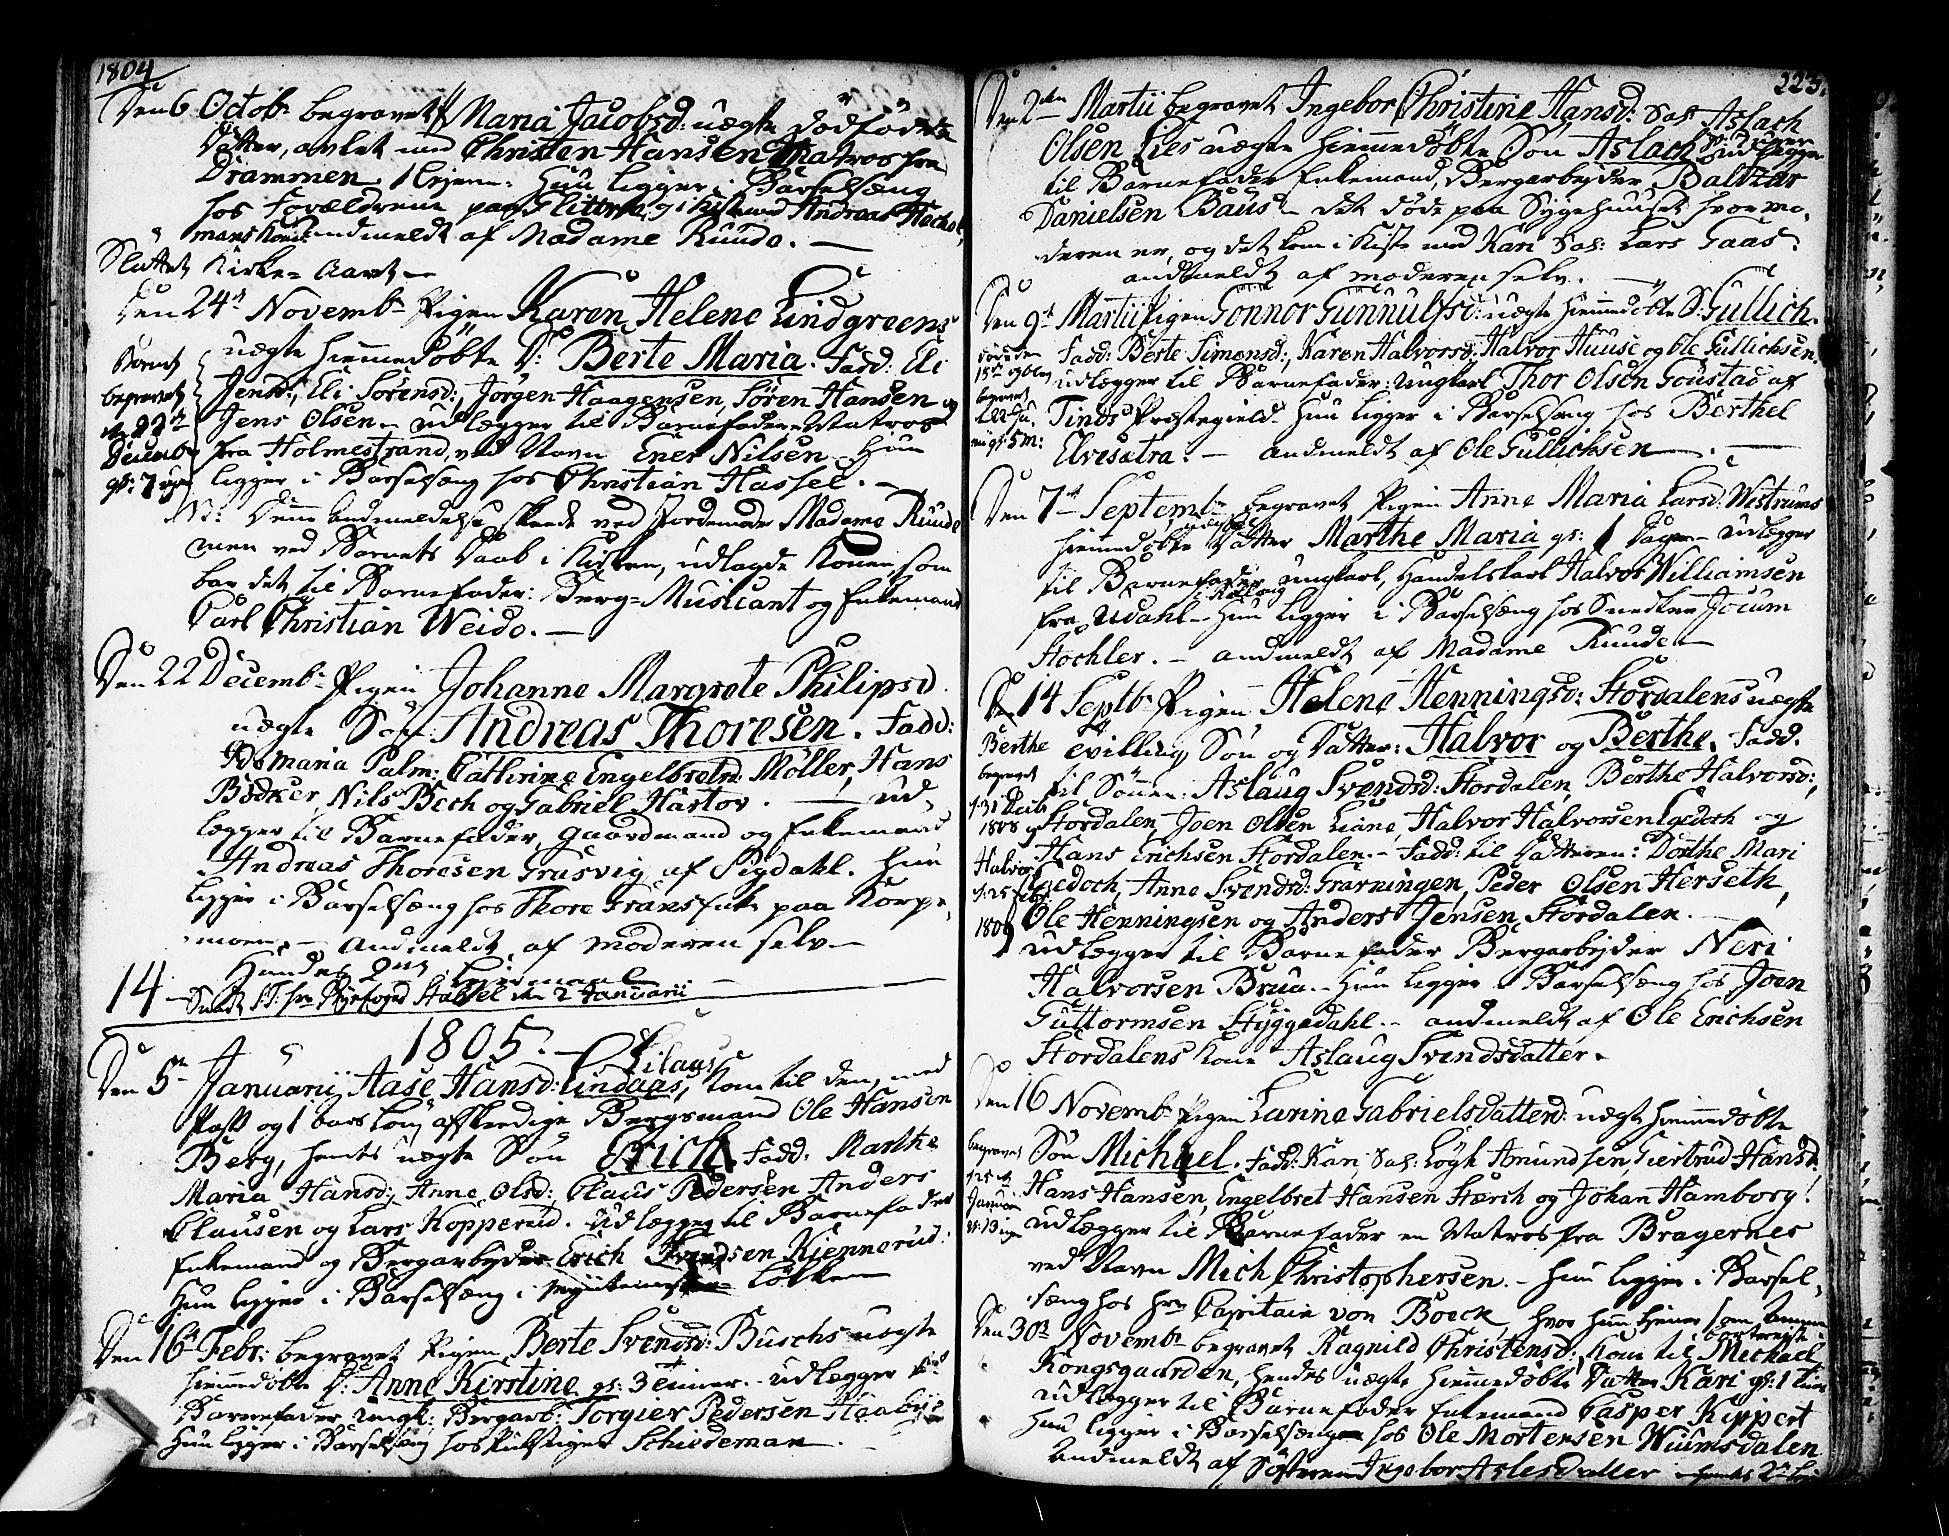 1804
Den 6 Octobr begravet Maria Jacobsd: uægte dödfödte
Datter, avlet med Christen Hansen Matros fra
Drammen. Hun ligger i Barselsæng
hos Forældrene paa og i Kiste med Andreas
mans Kone andmeldt af Madame Ruude. —
Sluttet Kirke-Aaret —
Den 24de Novembr Pigen Karen Helene Lindgreens
uægte hiemmedöbte D: Berte Maria. Fadd: Eli
Jensd:, Eli Sörensd:, Jörgen Haagensen, Sören Hansen og
Jens Olsen — udlægger til Barnefader Matros
fra Holmestrand, ved Navn Ener Nilsen. Hun
ligger i Barselsæng hos Christian Hassel. —
Barnet
begravet
d. 22de
Decembr
gl: 7 uger
NB: Denne Andmeldelse skeede ved Jordemoder Madame Ruude
men ved Barnets Daab i Kirken, udlagde Konen som
bar det til Barnefader: Berg-Musicant og Enkemand
Carl Christian Weido. —
Den 22 Decembr Pigen Johanne Margrete Philipsd
uægte Sön Andreas Thoresen. Fadd:
Maria Palm: Cathrine Engelbretd Möller, Hans
Bödker, Nils Bech og Gabriel Hartov. — ud-
lægger til Barnefader, Gaardmand og Enkemand
Andreas Thoresen Grasvig af Sigdahl. Hun
ligger i Barselsæng hos Thore Grans Enke paa Korpe-
moen. — Andmeldt af moderen selv —
Hendes 2det Leiermaal —
14 — Sendt Hr Byefoged Hassel den 2 Januarii
1805. —
Den 5te Januarii Aase Hansd: Lindaas, kom til den, med
Pass og 1 Aars Lön afskedige Bergsmand Ole Hansen
Berg, hendes uægte Sön Erich. Fadd: Marthe
Maria Hansd:, Anne Olsd:, Claus Pedersen Anders
Clausen og Lars Kopperud. Udlægger til Barnefader
Enkemand og Bergarbeyder Erich Svendsen Kiennerud:
Hun ligger i Barselsæng i Lökken
Den 16de Febr: begravet Pigen Berte Svendsd: Buschs uægte
hiemmedöbte D: Anne Kirstine gl: 3 Timer. — udlægger til
Barnefader, Ungk: Bergarb: Torgier Pedersen Haabye
Hun ligger i Barselsæng hos Schiedeman.
223.
Den 2den Martii begravet Ingebor Christine Hansd: Sal: Aslach
Olsen Lies uægte hiemmedöbte Sön Aslach udlægger
til Barnefader Enkemand, Bergarbeyder Baltzar
Danielsen Baus — det döde paa Sygehuuset hvor mo-
deren er, og det kom i Kiste med Kari Sal: Lars Gaas.
andmeldt af moderen selv. —
Den 9de Martii Pigen Gonnor Gunnulfsd: uægte hiemmedöbte S: Gullich.
Fadd: Berte Simonsd:, Karen Halvorsd:, Halvor Huuse og Ole Gullichsen.
udlægger til Barnefader: Ungkarl Thor Olsen Goustad af
Tinds Præstegield. Hun ligger i Barselsæng hos Berthel
Elvesætra. — andmeldt af Ole Gullichsen —
begravet
gl: 5 M:
Den 7de Septembr begravet Pigen Anne Maria Larsd: Westrums
hiemmedöbte Datter Marthe Maria gl: 1 Dage — udlægger
til Barnefader, ungkarl, Handelskarl Halvor Williamsen
fra Udahl — Hun ligger i Barselsæng hos Snedker Jocum
Stöchler. — andmeldt af Madame Ruude —
Den 14 Septb: Pigen Helene Henningsd: Stordalens uægte
tvilling Sön og Datter: Halvor og Berthe. Fadd.
til Sönnen: Aslaug Svendsd: Stordalen, Berthe Halvorsd:,
Stordalen, Joen Olsen Liane, Halvor Halvorsen Egedoch og
Hans Erichsen Stordalen. — Fadd: til Datteren: Dorthe Mari
Egedoch, Anne Svendsd: Grarningen, Peder Olsen Herseth,
Ole Henningsen og Anders Jensen Stordalen. —
udlægger til Barnefader Bergarbeyder Neri
Halvorsen Brua. — Hun ligger i Barselsæng hos Joen
Guttormsen Styggedahl. — andmeldt af Ole Erichsen
Stordalens Kone Aslaug Svendsdatter.
Berthe
begravet
d. 31 Decb
1808 og
Halvor
d. 25 Febr
Den 16 Novembr Pigen Larine Gabrielsdatterd: uægte hiemmedöbte
Sön Michael. Fadd: Kari Sal: Lögh Amundsen Giertrud Hansd.
Hans Hansen, Engelbret Hansen Stærch og Johan Hamborg.
udlægger til Barnefader en Matros fra Bragernes
ved Navn Mich Christophersen. — Hun ligger i Barsel-
sæng hos Hr Capitain von Boeck, hvor hun tiener som Amme
begravet
d. 25de
Januar
gl: 13 uger
Den 30te Novembr begravet Ragnild Christensd: kom til Michael
Kongsgaarden, hendes uægte hiemmedöbte Datter Kari gl: 1 Time
udlægger til Barnefader Enkemand Casper Kippert
Hun ligger i Barselsæng hos Ole Mortensen Wiumsdalen
Andmeldt af Söster Ingebor Aslesdatter — hendes 2det